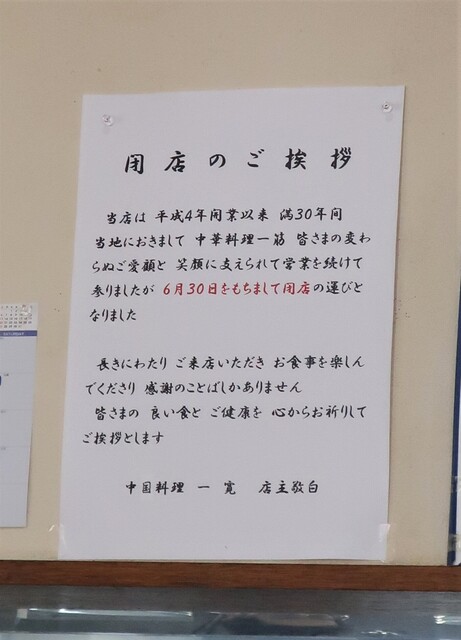 閉店のご挨拶
当店は 平成4年開業以来 満30年間
当地におきまして 中華料理一筋 皆さまの変わ
らぬご愛顧と 笑顔に支えられて営業を続けて
参りましたが 6月30日をもちまして閉店の運びと
なりました
長きにわたり ご来店いただき お食事を楽しん
でくださり 感謝のことばしかありません
皆さまの 良い食と ご健康を 心からお祈りして
ご挨拶とします
中国料理 一 寛 店主敬白